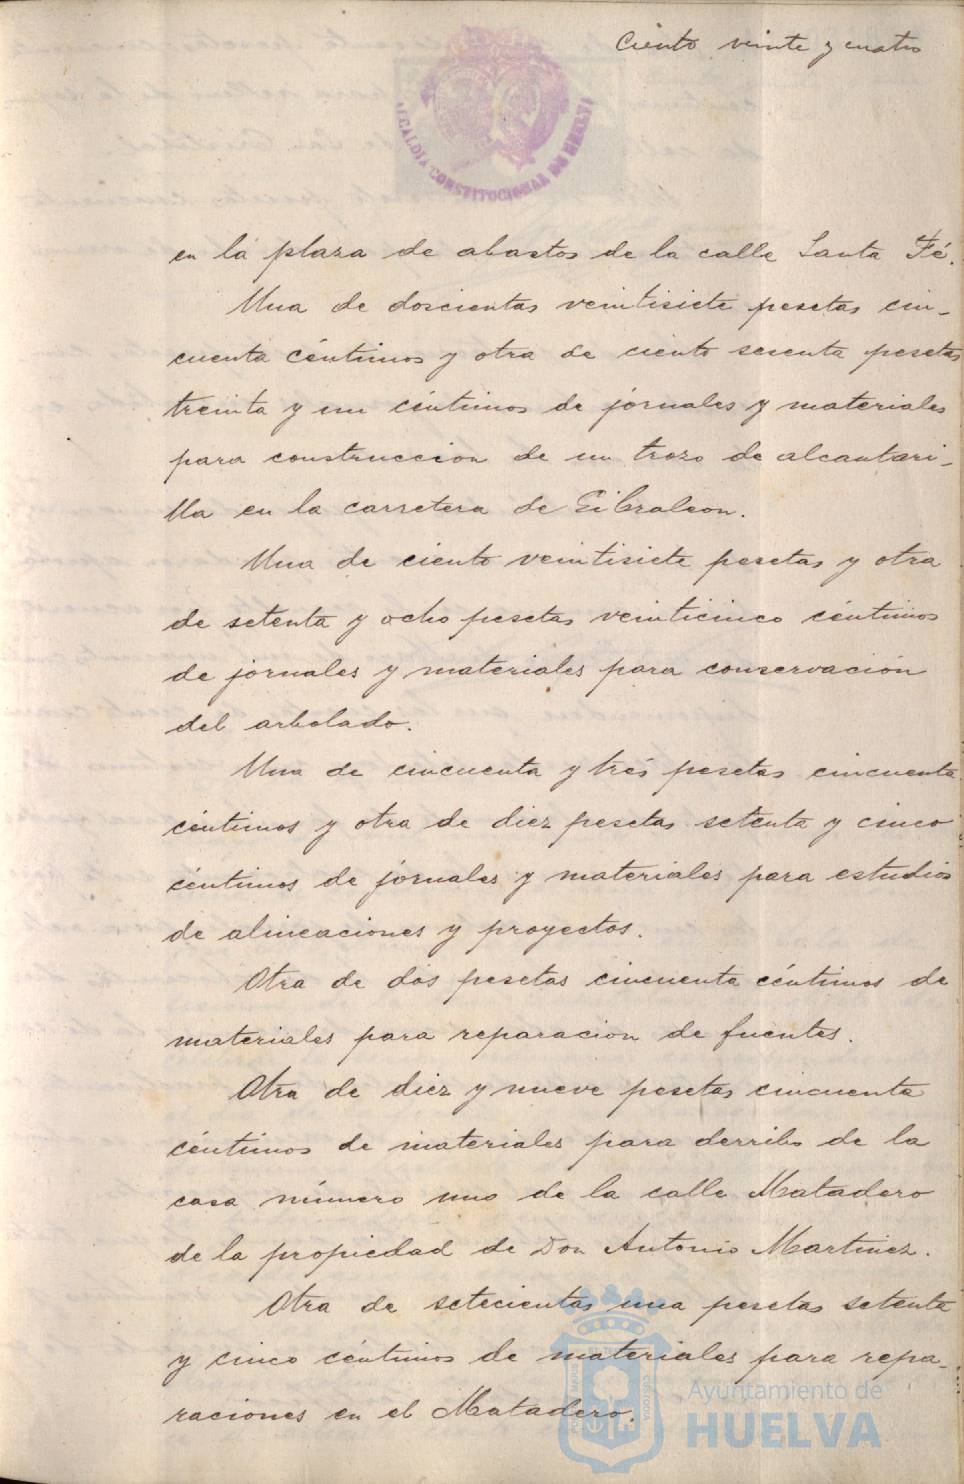 Ciento veinte y cuatro
ALCALDIA CONSTITUCIONAL DE HUELVA
en la plaza de abastos de la calle Santa Fé.
Una de doscientas veintisiete pesetas cin-
cuenta céntimos y otra de ciento sesenta pesetas
treinta y un céntimos de jornales y materiales
para construccion de un trozo de alcantari-
lla en la carretera de Gibraleon.
Una de ciento veintisiete pesetas y otra
de setenta y ocho pesetas veinticinco céntimos
de jornales y materiales para conservación
del arbolado.
Una de cincuenta y tres pesetas cincuenta
céntimos y otra de diez pesetas setenta y cinco
céntimos de jornales y materiales para estudios
de alineaciones y proyectos.
Otra de dos pesetas cincuenta céntimos de
materiales para reparacion de fuentes.
Otra de diez y nueve pesetas cincuenta
céntimos de materiales para derribo de la
casa número uno de la calle Matadero
de la propiedad de Don Antonio Martinez.
Otra de setecientas una pesetas setenta
y cinco céntimos de materiales para repa-
raciones en el Matadero.
Ayuntamiento de
HUELVA